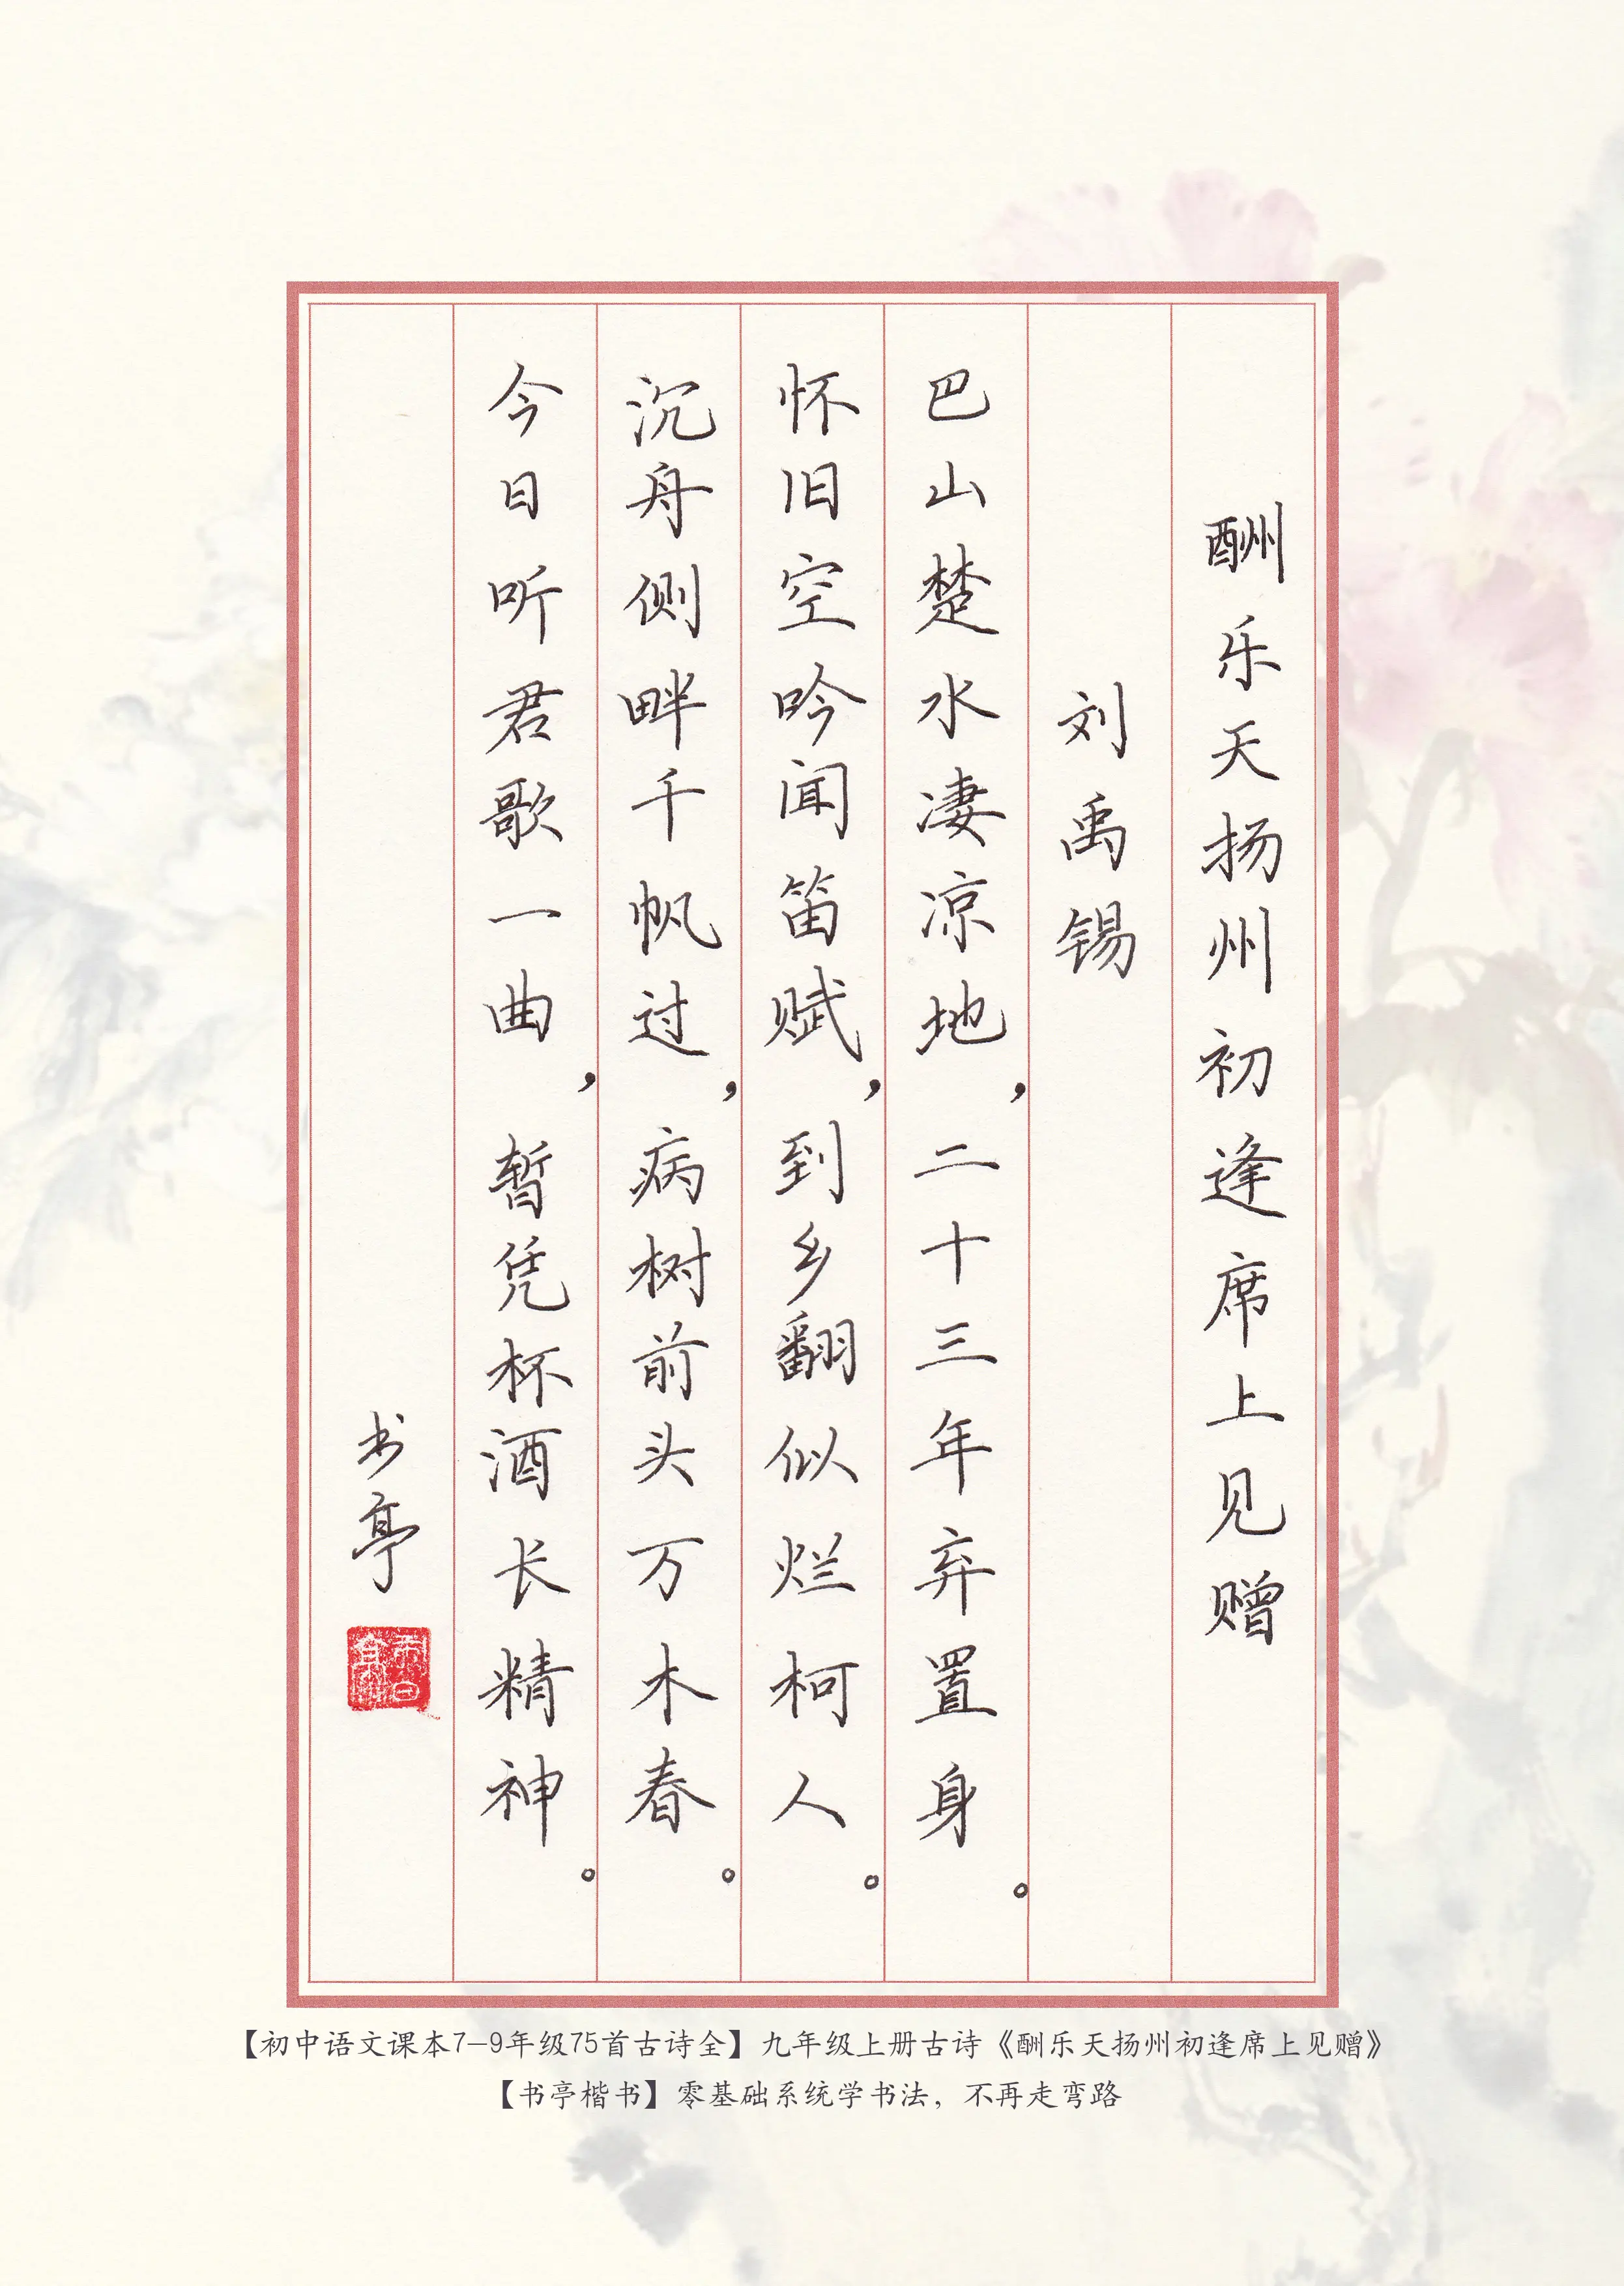 酬乐天扬州初逢席上见赠
刘禹锡
巴山楚水凄凉地，二十三年弃置身。
怀旧空吟闻笛赋，到乡翻似烂柯人。
沉舟侧畔千帆过，病树前头万木春。
今日听君歌一曲，暂凭杯酒长精神。
书亭
【初中语文课本7-9年级75首古诗全】九年级上册古诗《酬乐天扬州初逢席上见赠》
【书亭楷书】零基础系统学书法，不再走弯路